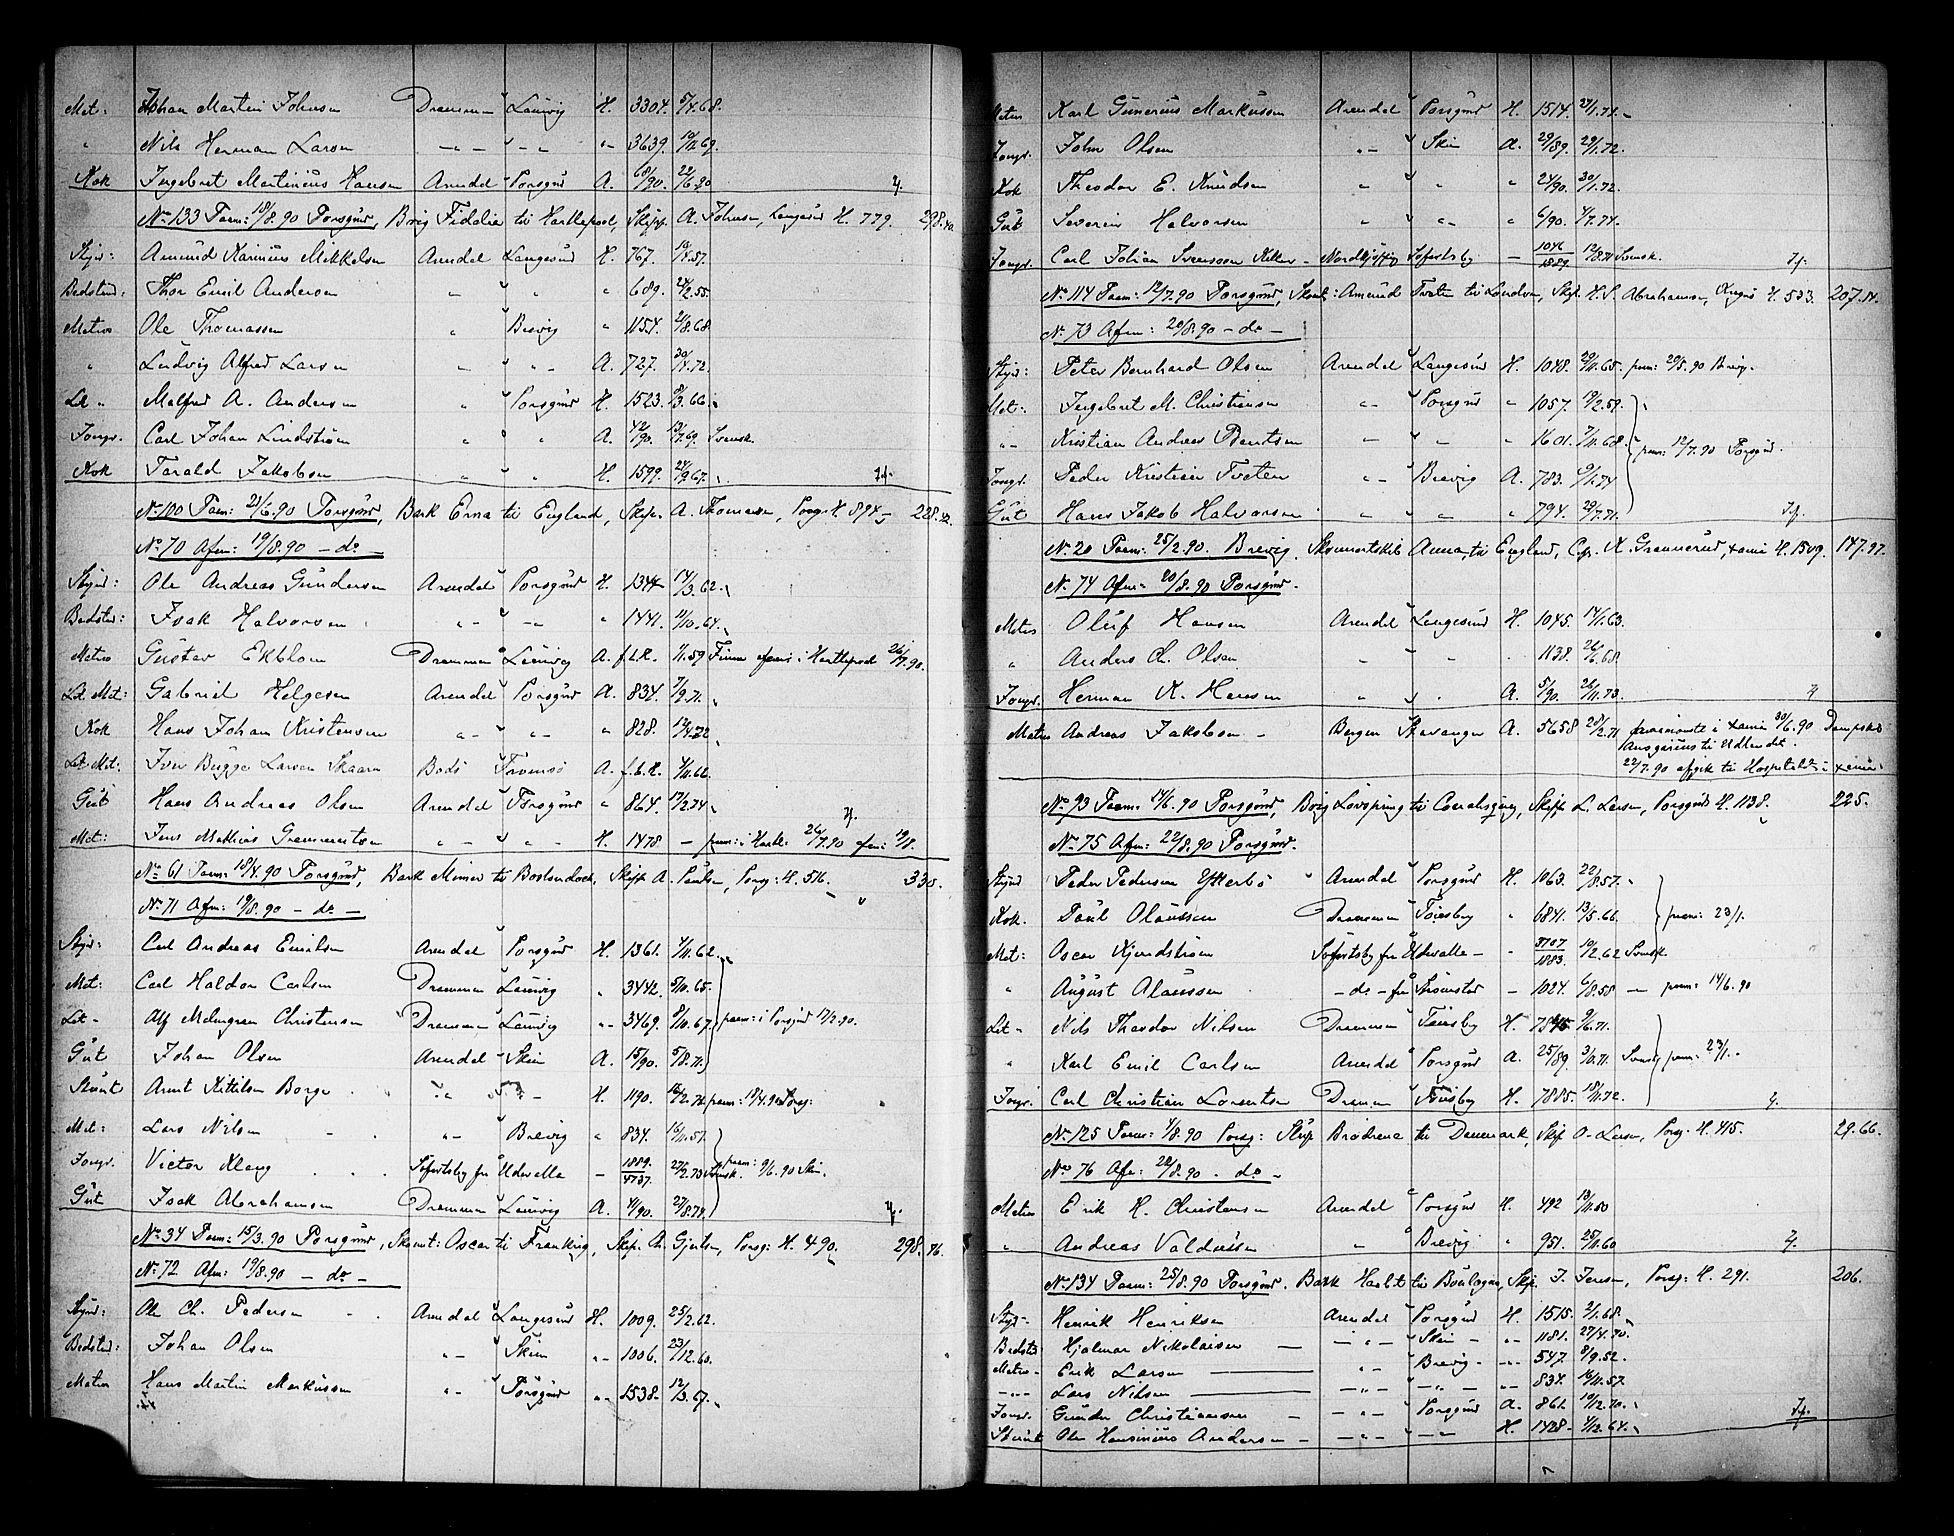 Met: Johan Martin Johnsen Drammen Laurvig H. 3304. 5/4.68.
" Nils Herman Larsen - " - - " - "- 3639. 
Kok Ingebret Martinius Hansen Arendal Porsgrd A. 68/90. 
No 133 Paam: 18/8.90 Porsgrund, Brig Fidelia til Hartlepool, Skipp. A. Johnsen, Langesund H. 779. 298.
Styrm: Amund Marinius Mikkelsen Arendal Langesund H. 767.
Bedstm: Thor Emil Andersen " " " 689.
Matros Ole Thomassen " Brevig " 1154. 2/8.68.
" Ludvig Alfred Larsen " " - A. 727. 
Let " Malfred A. Andersen " Porsgrund H. 1523. 
Jongm. Carl Johan Lindstrøm " " A. 42/90. Svensk
Kok Tarald Jakobsen " " H. 1599.
No 100 Paam: 21/6.90 Porsgrund, Bark Erna til England, Skip. A. Thomassen, Porsg. H. 894. 228.
No 70 Afm: 19/8.90 - do -
Styrm: Ole Andreas Gundersen Arendal Porsgrund H. 1344 14/3.62.
Bedstm: Isak Halvorsen " - - " - " 1441. 11/10.64.
Matros Gustav Ekblom Drammen Laurvig A. f.L.R. 1/11.59 Finne afm: i Hartlepool 26/7.90.
Let Met: Gabriel Helgesen Arendal Porsgrund A. 834. 7/9.71.
Kok Hans Johan Kristensen " - " - " 828.
Let Met: Iver Bugge Larsen Skaarn Bodø Tromsø A. f.L.R.
Gut Hans Andreas Olsen Arendal Porsgrund " 864. 17/2.74
Met: Jens Mathias H. 1478 - paam: i Hartl: 26/7.90 afm: 19/8.
No 61 Paam: 18/4.90 Porsgrund, Bark Mimer til Skip A. Paulsen, Porsg: H. 516. 335.
No 71 Afm: 19/8.90 - do -
Styr: Carl Andreas Emilsen Arendal Porsgrund H. 1361. 4/11.62.
Met: Carl Haldor Carlsen Drammen Laurvig " 3442.
Let - Alf Melmgren Christensen Drammen Laurvig " - 3469. 8/10.67. paam: i Porsgrd
Gut Johan Olsen Arendal Skien A. 15/90. 5/8.71.
Stuert Arnt Kittilsen Borge " " - H. 1190. paam: 19/4.90 Porsg:
Met: Lars Nilsen " - Brevig " 834. 16/11.57.
Jongm. Victor Klang Søfartsby fra Udevalla - 1889./4737. Svensk. paam: 9/6.90 Skien.
Gut Isak Abrahamsen Drammen Laurvig A. 4/90. 27/8.74.
No 34 Paam: 15/3.90 Porsgrund, Skonnt: Oscar til Frankrig, Skip. Ch. Gjertsen, Porsg: H. 490. 298.76.
No 72 Afm: 19/8.90 - do -
Styrm: Ole Ch. Pedersen Arendal Langesund H. 1009. 25/2.62.
Bedstm: Johan Olsen " - Skien " - 1006. 23/12.60.
Matros Hans Martin Markussen " - Porsgrund " - 1538. 12/3.67.
Matros Karl Gunerius Markussen Arendal Porsgrund H. 1514. 27/1.71.
Jongm. John Olsen " - Skien A. 29/89. 29/1.72.
Kok Theodor E. Knudsen " " " 24/90. 30/1.72.
Gut Severin Halvorsen " " - " 6/90. 4/7.74.
Jongm. Carl Johan Svensson Norrkjøping Søfartsby - 1046/1889. Svensk.
No 114 Paam: 12/7.90 Porsgrund, Skonnt: Amund Tveten til London, Skip. H. S. Abrahamsen, H. 533. 207.
No 73 Afm: 20/8.90 - do -
Styrm: Peter Bernhard Olsen Arendal Langesund H. 1048. 29/11.65. paam: 20/5.90 Brevig.
Met: Ingebret M. Christiansen " - Porsgrund " 1057. 19/2.59.
" - Kristian Andreas Bentsen " - " - " 1601. 7/11.68. paam: 12/7.90 Porsgrd.
Jongm. Peder Kristian Tveten " - Brevig A. 783. 9/1.74
Gut Hans Jakob Halvorsen " " " 794. 29/7.71.
No 20 Paam: 25/2.90. Brevig, Skonnertskib Anna til England, Cap. A. Grønnerud, H. 1509. 147.97.
No 74 Afm: 20/8.90 Porsgrund.
Matros Oluf Hansen Arendal Langesund H. 1045. 14/1.63.
" Anders Ch. Olsen " " . 1138. 26/6.68.
Jongm. Herman K. Hansen " " A. 5/90. 26/11.73.
Matros Andreas Jakobsen - Bergen Stavanger A. 5658 28/2.71 paamønstr. i xania 30/6.90 Dampsk.
Ansgarius til Udlandet.
22/7.90 afgik til Hospitalet i xania.
No 93 Paam: 14/6.90 Porsgrund, Brig Løvspring til Skip L. Larsen, Porsgrund H. 1138. 225.
No 75 Afm: 22/8.90 Porsgrund.
Styrm Peder Pedersen Ytterbø Arendal Porsgrund H. 1063. 22/8.57.
Kok. Paul Olaussen Drammen Tønsby " 6841. 13/5.66. paam: 23/1.
Met: Oscar Hjerdstrøm Søfartsby fra Udevalla - " 3707/1883. 10/2.62 Svensk.
" August Olaussen - do - fra Strømstad - 1024. 6/8.58 - paam: 14/6.90
Let " Nils Theodor Nilsen Drammen Tønsby H. 7845. 9/6.71.
" Karl Emil Carlsen Arendal Porsgrund A. 25/89. 3/10.71. Svensk paam: 23/1.
Jongm. Carl Christian Lorentsen Drammen Tønsby H. 7885. 18/11.72.
No 125 Paam: 4/8.90 Porsg: Slup Brødrene til Danmark, Skip O. Larsen, Porsg. H. 415. 29.66.
No 76 Afm: 22/8.90 - do -
Matros Erik H. Christensen Arendal Porsgrund H. 492 13/11.50
" Andreas Valdussen " Brevig " 951. 25/11.60
No 134 Paam: 25/8.90 Porsgrund. Bark Harbt til Boulogne, Skip. J. Jensen, Porsg: H. 291. 206.
Styr - Henrik Henriksen Arendal Porsgrund H. 1515. 2/1.68.
Bedstm Hjalmar Nikolaisen - - " - Skien - " - 1181. 27/4.70.
Matros - Erik Larsen - " - Brevig - " - 547. 8/9.52.
- " - Lars Nilsen - " - - " - " - 834. 16/11.57
Jongm. Gunder Christiansen - - " - Porsgrund A. 861. 10/12.70.
Stuert Ole Hansinius Andersen - - " - - " - H. 1428 - 4/12.64.